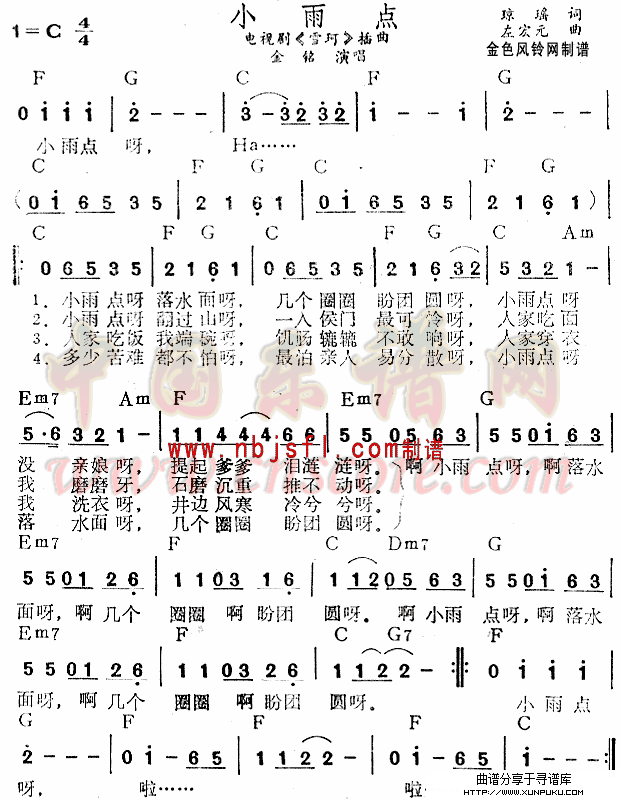 小 雨 点
1=C 4/4
琼 瑶 词
左宏元 曲
电视剧《雪珂》插曲
金 铭 演唱
金色风铃网制谱
F G C F G
0 i i i | 2 - - - | 3 - 3 2 3 2 | i - - i | 2 - - - |
小 雨 点 呀， Ha……
C F G C F G
( 0 i 6 5 3 5 | 2 1 6 1 | 0 i 6 5 3 5 | 2 1 6 1 )
C F G C F G C Am
0 6 5 3 5 | 2 1 6 1 | 0 6 5 3 5 | 2 1 6 3 2 | 5 3 2 1 - |
1．小雨 点呀 落水 面呀， 几个 圈圈 盼团 圆呀， 小雨 点呀
2．小雨 点呀 翻过 山呀， 一人 侯门 最可 冷呀， 人家 吃面
3．人家 吃饭 我端 碗呀， 饥肠 辘辘 不敢 响呀， 人家 穿衣
4．多少 苦难 都不 怕呀， 最泊 亲人 易分 散呀， 小雨 点呀
Em7 Am F Em7 G
5 · 6 3 2 1 - | 1 1 4 4 6 6 | 5 5 0 5 6 3 | 5 5 0 i 6 3 |
没 亲娘 呀， 提起 爹爹 泪涟 涟呀。 啊 小雨 点呀，啊 落水
我 磨磨 牙， 石磨 沉重 推不 动呀。
我 洗衣 呀， 井边 风寒 冷兮 兮呀。
落 水面 呀， 几个 圈圈 盼团 圆呀。
www.nbjsfl.com制谱
Em7 F C Dm7 G
5 5 0 1 2 6 | 1 1 0 3 1 6 | 1 1 2 0 5 6 3 | 5 5 0 i 6 3 |
面呀，啊 几个 圈圈 啊 盼团 圆呀。 啊 小雨 点呀，啊 落水
Em7 F C G7 F
5 5 0 1 2 6 | 1 1 0 3 2 6 | 1 1 2 2 - :||: 0 i i i |
面呀，啊 几个 圈圈 啊 盼团 圆呀。 小 雨 点
G F F C
2 - - - | 0 i - 6 5 | 5 - - - | 0 i - 6 5 | 5 - - - :||
呀， 啦…… 啦
曲谱分享于寻谱库
HTTP://WWW.XUNPUKU.COM